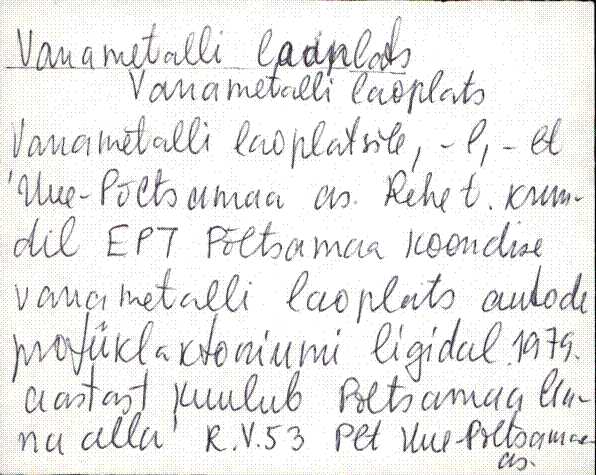 Vanametalli laoplats
Vanametalli laoplats
Vanametalli laoplatsile, -l, -lt
Uue-Põltsamaa as. Rehe t. krun-
dil EPT Põltsamaa koondise
vanametalli laoplats autode
profülaktooriumi ligidal. 1979.
aastast kuulub Põltsamaa lin-
na alla R.V.53 Plt Uue-Põltsamaa
as.